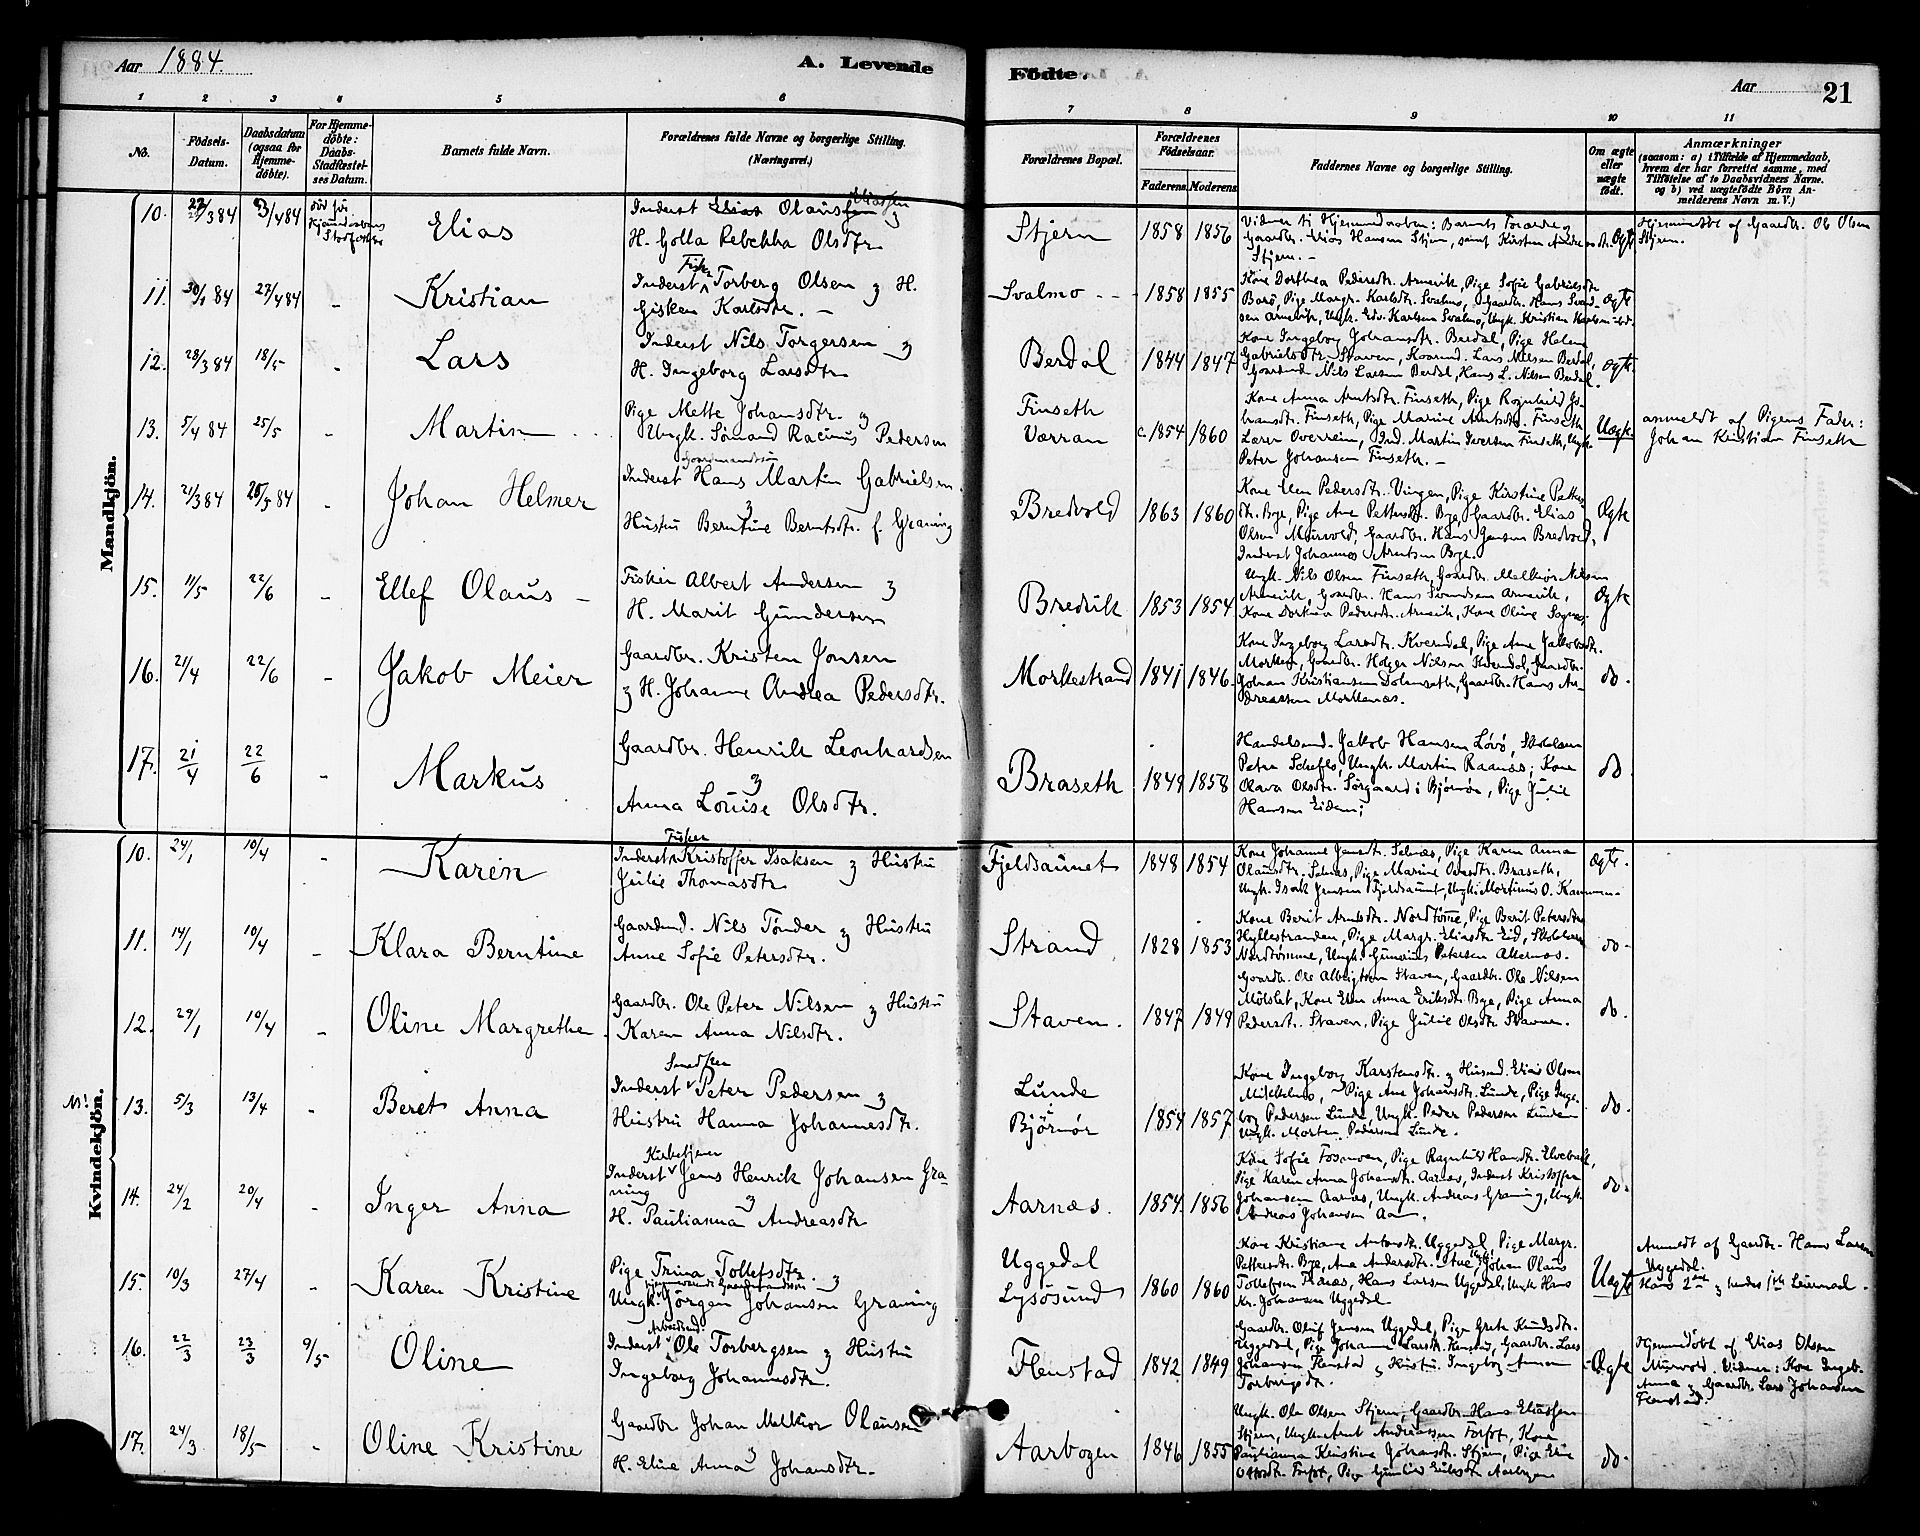 Aar 1884.
A. Levende
Födte.
Aar
21
1 2 3 4 5 6 7 8 9 10 11
No.
Födsels-Datum.
Daabsdatum (ogsaa for Hjemme-döbte).
For Hjemme-döbte: Daabs-Stadfæstel-ses Datum.
Barnets fulde Navn.
Forældrenes fulde Navne og borgerlige Stilling.
(Næringsvei.)
Forældrenes Bopæl.
Forældrenes Födselsaar.
Faderens. Moderens.
Faddernes Navne og borgerlige Stilling.
Om ægte eller uægte födt.
Anmærkninger
(saasom: a) i Tilfælde af Hjemmedaab, hvem der har forrettet samme, med Tilföielse af to Daabsvidners Navne. og b) ved uægtefödte Börn An-melderens Navn m. V.)
Mandkjön.
10. /3 84 /4 84 Elias
Inderst Olaus Eliassen &
H. Golla Rebekka Olsdtr
Stjern 1858 1856
Gaardbr. Elias Hansen Stjern, samt Kirsten
Stjern. -
Ægte
Hjemmedøbt af Gaardbr. Ole Olsen Stjern.
11. 30/1 84 27/4 84 - Kristian
Inderst Fisker Torberg Olsen & H.
Gisken Karlsdtr. -
Svalmo - - 1858 1855
Kone Dorthea Pedersdtr. Arnevik, Pige Sofie Gabrielsdtr
Borö, Pige Margr. Karlsdtr. Svalmo, Gaardbr. Hans Svend-
sen Arnevik, Ungk. Edv. Karlsen Svalmo, Ungk. Kristian Karlsen ibd.
Ægte
12. 28/3 84 18/5 - Lars
Inderst Nils Torgersen &
H. Ingeborg Larsdtr
Berdal 1844 1847
Kone Ingeborg Johansdtr. Berdal, Pige Helene
Gabrielsdtr. Staven, Lars Nilsen Berdal,
Gaardmd Nils Larsen Berdal, Hans L. Nilsen Berdal.
Ægte
13. 5/4 84 25/5 - Martin
Pige Mette Johansdtr. &
Ungk. Sömand Racinus Pedersen
Finseth
Værran c. 1854 1860
Kone Anna Arntsdtr. Finseth, Pige Ragnhild Jo-
hansdtr. Finseth, Pige Marine Arntsdtr. Finseth
Lærer Overrein, Ind. Martin Iversen Finseth, Ungk.
Peter Johansen Finseth. -
Uægte
anmeldt af Pigens Fader:
Johan Kristian Finseth
14. 21/3 84 25/5 84 - Johan Helmer
Inderst Gaardmandssön Hans Martin Gabrielsen
&
Hustru Berntine Berntsdtr. f. Graning
Bredvold 1863 1860
Kone Elen Pedersdtr. Vingen, Pige Kirstine Petters-
dtr. Bye, Pige Ane Pettersdtr. Bye, Gaardbr. Elias
Olsen Murvold, Gaardbr. Hans Jensen Bredvold,
Inderst Johannes Arntsen Bye.
Ægte
15. 11/5 22/6 - Ellef Olaus -
Fisker Albert Andersen &
H. Marit Gundersen
Bredvik 1853 1854
Ungk. Nils Olsen Finseth, Gaardbr. Melkior Nilsen
Arnevik, Gaardbr. Hans Svendsen Arnevik,
Kone Dorthea Pedersdtr. Arnevik, Kone Oline
Ægte
16. 21/4 22/6 - Jakob Meier
Gaardbr. Kristen Jonsen
& H. Johanne Andrea Pedersdtr.
Morkestrand 1841 1846
Kone Ingeborg Larsdtr. Kverndal, Pige Ane Jakobsdtr.
Morken, Gaardbr. Holger Nilsen Kverndal, Gaardbr.
Johan Kristiansen Dolmseth, Gaardbr. Hans An-
dreassen Morkenæs.
do.
17. 21/4 22/6 - Markus
Gaardbr. Henrik Leonhardsen
&
Anna Louise Olsdtr.
Braseth 1849 1858
Handelsmd. Jakob Hansen Lövö, Skolelærer
Peter Scheflo, Ungk. Martin Raanæs; Kone
Olava Olsdtr. Sörgaard i Björnör, Pige Julie
Hansen Eiden;
do.
Kvindekjön.
10. 24/1 10/4 - Karen
Inderst Fisker Kristoffer Isaksen & Hustru
Julie Thomasdtr
Fjeldsaunet 1848 1854
Kone Johanne Jensdtr. Selnæs, Pige Karen Anna
Olausdtr. Selnæs, Pige Marine Olausdtr. Braseth,
Ungk. Isak Jensen Fjeldsaunet, Ungk. Mortinus O.
Ægte.
11. 14/1 10/4 - Klara Berntine
Gaardmd. Nils Tönder & Hustru
Anne Sofie Petersdtr.
Strand 1828 1853
Kone Berit Arntsdtr. Nordtömme, Pige Berit Petersdtr
Hyllestranden, Pige Margr. Eliasdtr. Eid, Skolelærer
Nordtömme, Ungk. Gunerius Petersen Akernæs.
do.
12. 29/1 10/4 - Oline Margrethe
Gaardbr. Ole Peter Nilsen & Hustru
Karen Anna Nilsdtr.
Staven. 1847 1849
Gaardbr. Ole Albrigtsen Staven, Gaardbr. Ole Nilsen
Mölslet, Kone Elen Anna Eriksdtr. Bye, Pige Anna
Pedersdtr. Staven, Pige Julie Olsdtr Staven.
do.
13. 5/3 13/4 - Beret Anna
Inderst Snedker Peter Pedersen &
Hustru Hanna Johannesdtr.
Lunde
i
Björnör 1854 1857
Kone Ingeborg Karstensdtr. & Husmd. Elias Olsen
Mikkelnes, Pige Ane Johansdtr. Lunde, Pige Inge-
borg Pedersen Lunde, Ungk. Peder Pedersen Lunde
Ungk. Morten Pedersen Lunde.
do.
14. 24/2 20/4 - Inger Anna
Inderst Kirketjener Jens Henrik Johansen Gra-
ning &
H. Paulianna Andreasdtr
Aarnæs. 1854 1856
Kone Sofie Fosmoen, Pige Ragnhild Hansdtr. Elvebakk,
Pige Karen Anna Johansdtr. Aarnæs, Inderst Kristoffer
Johansen Aarnæs, Ungk. Andreas Graning, Ungk.
Andreas Johansen Aarn.
do.
15. 10/3 27/4 - Karen Kristine
Pige Trina Tollefsdtr. &
Ungk. Jörgen Johansen Graning
Uggedal
Lysösund 1860 1860
Kone Kristiane Antonsdtr. Uggedal, Pige Margr.
Pettersdtr. Bye, Ane Andersdtr. Aune, Ungk. Johan Olaus
Tollefsen, Hans Larsen Uggedal, Ungk Hans
Kr. Johansen Uggedal.
Uægte
Anmeldt af Gaardbr. Hans Larsen
Uggedal.
Hans 2det & hendes 1ste Leiermaal.
16. 22/3 23/3 9/5 Oline
Inderst Arbeidsmd. Ole Torbergsen & Hustru
Ingeborg Johannesdtr.
Flenstad 1842 1849
Gaardbr. Oluf Jensen Uggedal, Pige Grete Knudsdtr.
Uggedal, Pige Johanna Larsdtr. Flenstad, Gaardbr. Lars
Johansen Flenstad & Hustru Ingeborg Anna
Torbergsdtr.
Ægte
Hjemmedöbt af Elias Olsen
Murvold. Vidner: Kone Ingeb.
Anna & Gaardbr. Lars Johansen
Flenstad.
17. 24/3 18/5 - Oline Kristine
Gaardbr Johan Melkior Olausen
&
H. Eline Anna Johansdtr.
Aarbogen 1846 1855
Ungk. Ole Olsen Stjern, Gaardbr. Hans Eliassen
Stjern, Ungk. Arnt Andreassen Forfot, Kone
Paulianna Kristine Johansdtr. Stjern, Pige Eline
Forfot, Pige Gunild Eriksdtr Aarbogen
do.